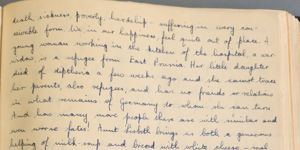 death, sickness, poverty, hardship, suffering in every con-
ceivable form. We in our happiness feel quite out of place. A
young woman working in the kitchen of the hospital, a war
widow is a refugee from East Prussia. Her little daughter
died of diphtheria a few weeks ago and she cannot trace
her parents also refugees, and has no friends or relations
in what remains of Germany to whom she can turn.
And how many more people there are with similar and
even worse fates! Aunt brings us both a generous
helping of milk-soup and bread with white cheese - real